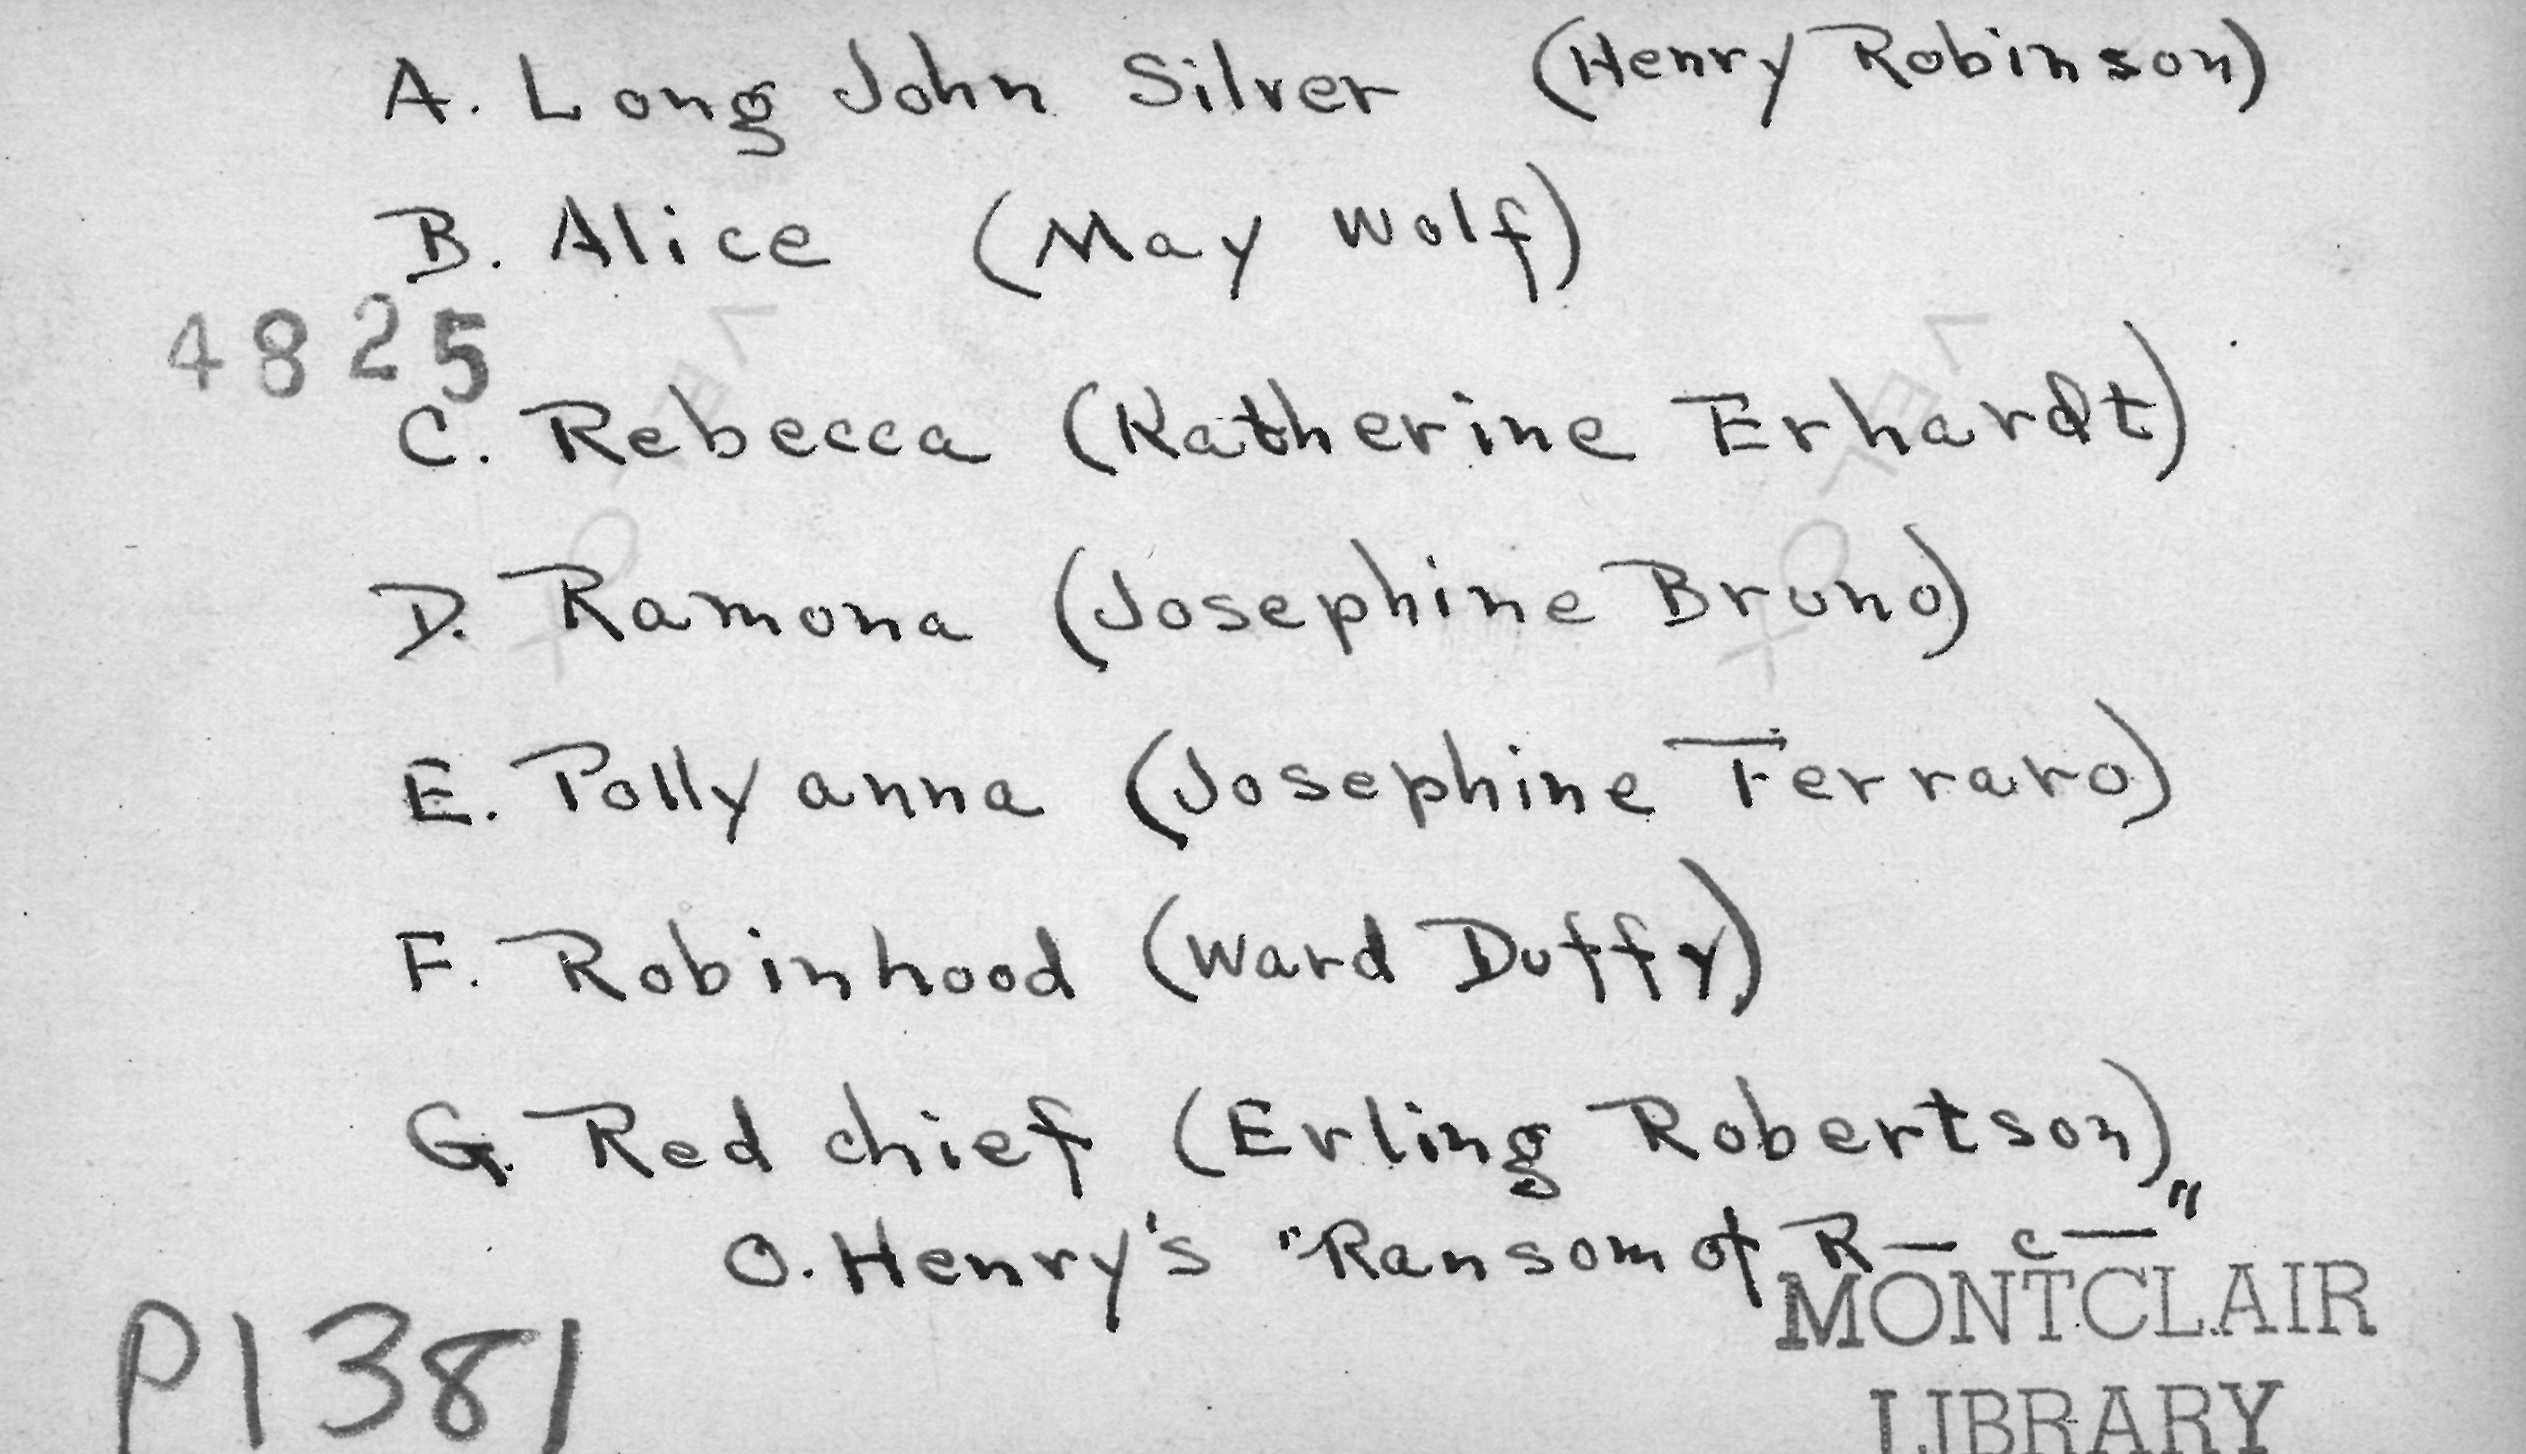 A. Long John Silver (Henry Robinson)
B. Alice (May Wolf)
4825
C. Rebecca (Katherine Erhardt)
D. Ramona (Josephine Bruno)
E. Pollyanna (Josephine Ferraro)
F. Robinhood (Ward Duffy)
G. Red chief (Erling Robertson)
O. Henry's "Ransom of R— c—"
MONTCLAIR
LIBRARY
P1381